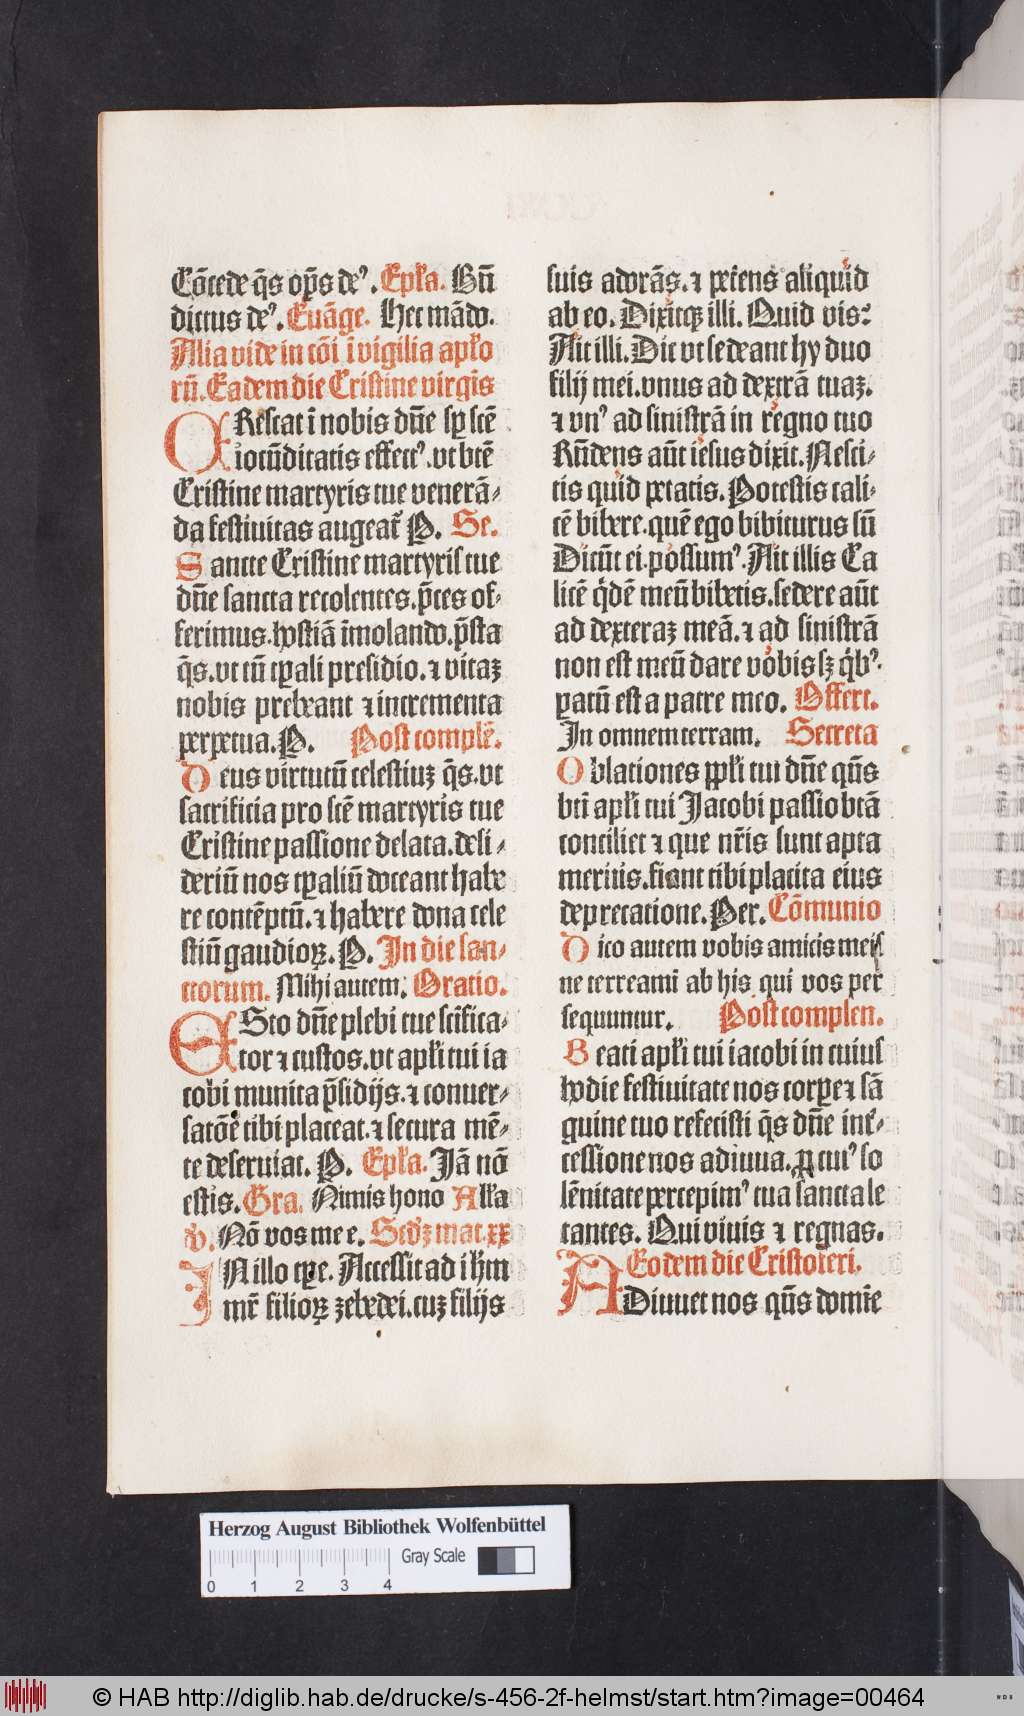 Cōcede q̄s op̄s deꝰ. Ep̄ła. Bn̄
dictus deꝰ. Euāge. Hec mādo.
Alia vide in cōi ī vigilia apło
rū. Eadem die Cristine virgīs
CRescat ī nobis dn̄e sp̄ scē
iocūditatis effectꝰ. vt btē
Cristine martyris tue venerā⸗
da festiuitas augeat᷑ P. Se.
Sancte Cristine martyris tue
dn̄e sancta recolentes. p̄ces of⸗
ferimus. hostiā īmolando. p̄sta
q̄s. vt cū tꝑali presidio. ⁊ vitaꝫ
nobis prebeant ⁊ incrementa
perpetua. P. Post complē.
Deus virtutū celestiuꝫ q̄s. vt
sacrificia pro scē martyris tue
Cristine passione delata. desi⸗
deriū nos tꝑaliū doceant habe
re contēptū. ⁊ habere dona cele
stiū gaudioꝝ. P. In die san⸗
ctorum. Mihi autem. Oratio.
ESto dn̄e plebi tue scīfica⸗
tor ⁊ custos. vt apłi tui ia
cobi munita p̄sidijs. ⁊ conuer⸗
satōe tibi placeat. ⁊ secura mē⸗
te deseruiat. P. Ep̄ła. Jā nō
estis. Gra. Nimis hono Ałła
v̄. Nō vos me e. Scd̄ꝫ mat. xx
IN illo tꝑe. Accessit ad ihm
mr̄ filioꝝ zebedei. cuꝫ filijs
suis adorās. ⁊ petens aliquid
ab eo. Dixitqꝫ illi. Quid vis?
Ait illi. Dic vt sedeant hy duo
filij mei. vnus ad dextrā tuaꝫ.
⁊ vnꝰ ad sinistrā in regno tuo
Rn̄dens aūt iesus dixit. Nesci⸗
tis quid petatis. Potestis cali⸗
cē bibere. quē ego bibiturus sū
Dicūt ei. possumꝰ. Ait illis Ca
licē q̇dē meū bibetis. sedere aūt
ad dexteraꝫ meā. ⁊ ad sinistrā
non est meū dare vobis sꝫ q̇bꝰ.
patū est a patre meo. Offert.
In omnem terram. Secreta
Oblationes ꝓpłi tui dn̄e qūs
bt̄i apłi tui Jacobi passio btā
conciliet ⁊ que nr̄is sunt apta
meritis. fiant tibi placita eius
deprecatione. Per. Cōmunio
Dico autem vobis amicis meis
ne terreamī ab his qui vos per
sequuntur. Post complen.
Beati apłi tui iacobi in cuius
hodie festiuitate nos corꝑe ⁊ sā
guine tuo refecisti q̄s dn̄e int̄⸗
cessione nos adiuua. ꝓ cuiꝰ so
lēnitate percepimꝰ tua sancta le
tantes. Qui viuis ⁊ regnas.
Eodem die Cristoferi.
ADiuuet nos qūs domīe
Herzog August Bibliothek Wolfenbüttel
Gray Scale
0 1 2 3 4
© HAB http://diglib.hab.de/drucke/s-456-2f-helmst/start.htm?image=00464